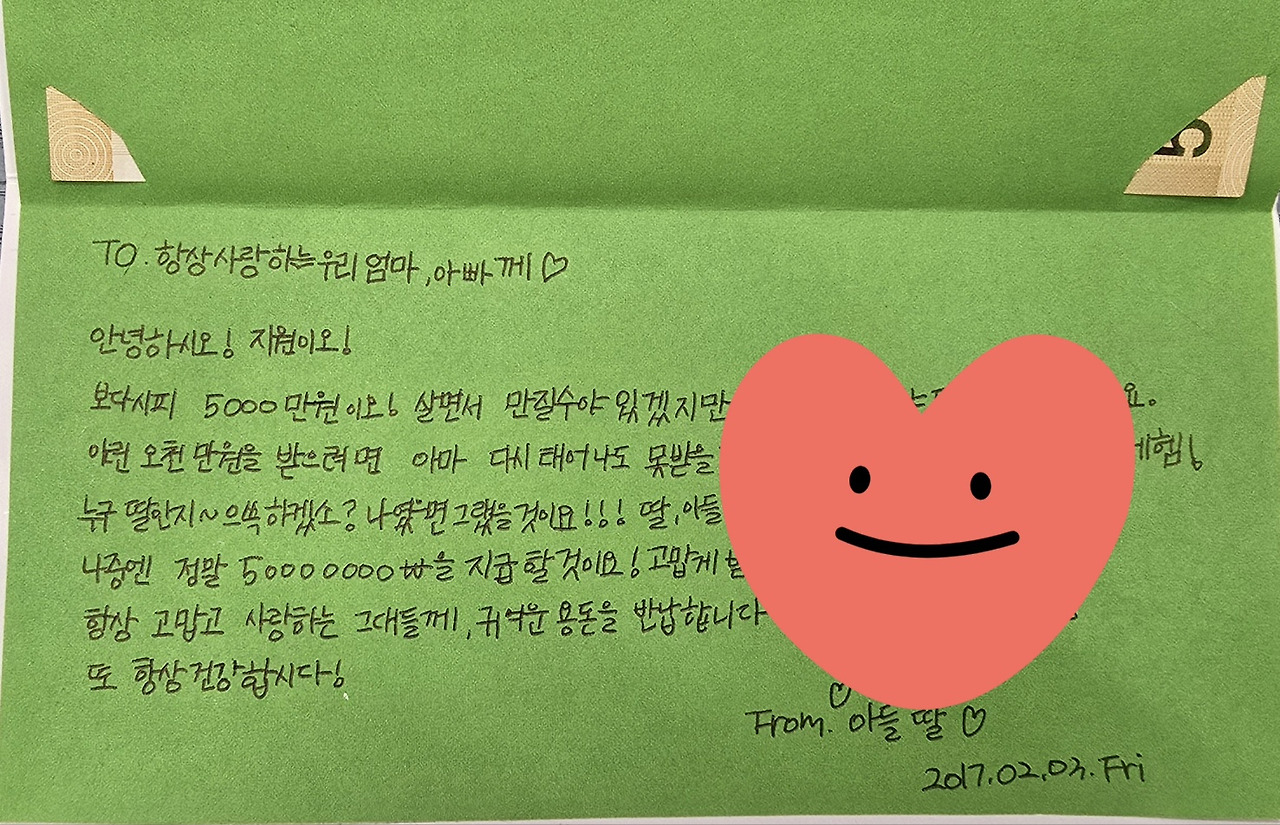 TO. 항상 사랑하는 우리 엄마, 아빠께♡
안녕하시오! 지원이오!
보다시피 5000만원이오! 살면서 만질수야 있겠지만 요.
야린 오천만원을 받으려면 아마 다시 태어나도 못받을
누구 딸한지~ 으쓱하겠소? 나였으면 그랬을것이요!!! 딸, 아들
나중엔 정말 50000000₩을 지급할것이요! 고맙게
항상 고맙고 사랑하는 그대들께, 귀여운 용돈을 반납합니다
또 항상 건강합시다!
From. 아들♡딸♡
2017.02.03. Fri